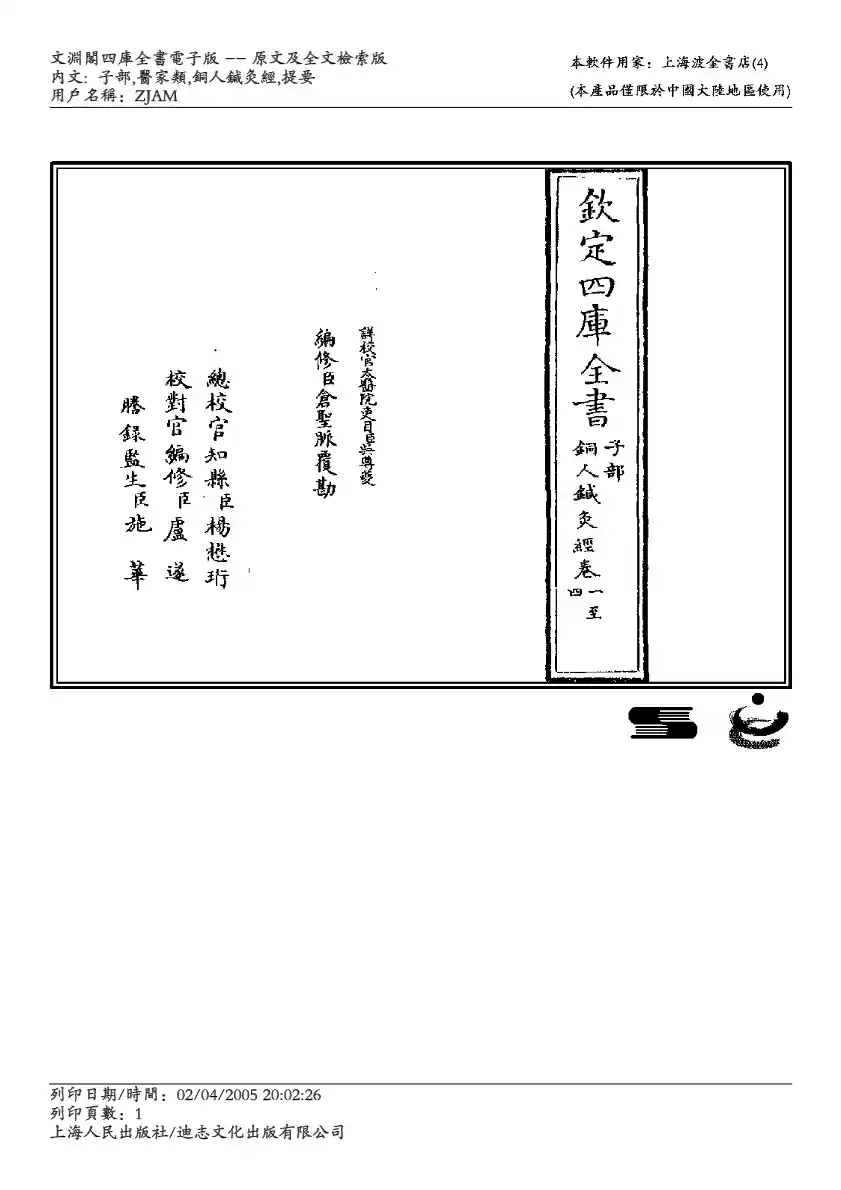 文淵閣四庫全書電子版 －－ 原文及全文檢索版
內文: 子部,醫家類,銅人鍼灸經,提要
用戶名稱：ZJAM
本軟件用家：上海波金書店(4)
(本產品僅限於中國大陸地區使用)
欽定四庫全書
子部
銅人鍼灸經卷
一至
四
詳校官太醫院吏目臣吳尊夔
編修臣倉聖脈覆勘
總校官知縣臣楊懋珩
校對官編修臣盧遂
謄錄監生臣施華
列印日期/時間：02/04/2005 20:02:26
列印頁數：1
上海人民出版社/迪志文化出版有限公司